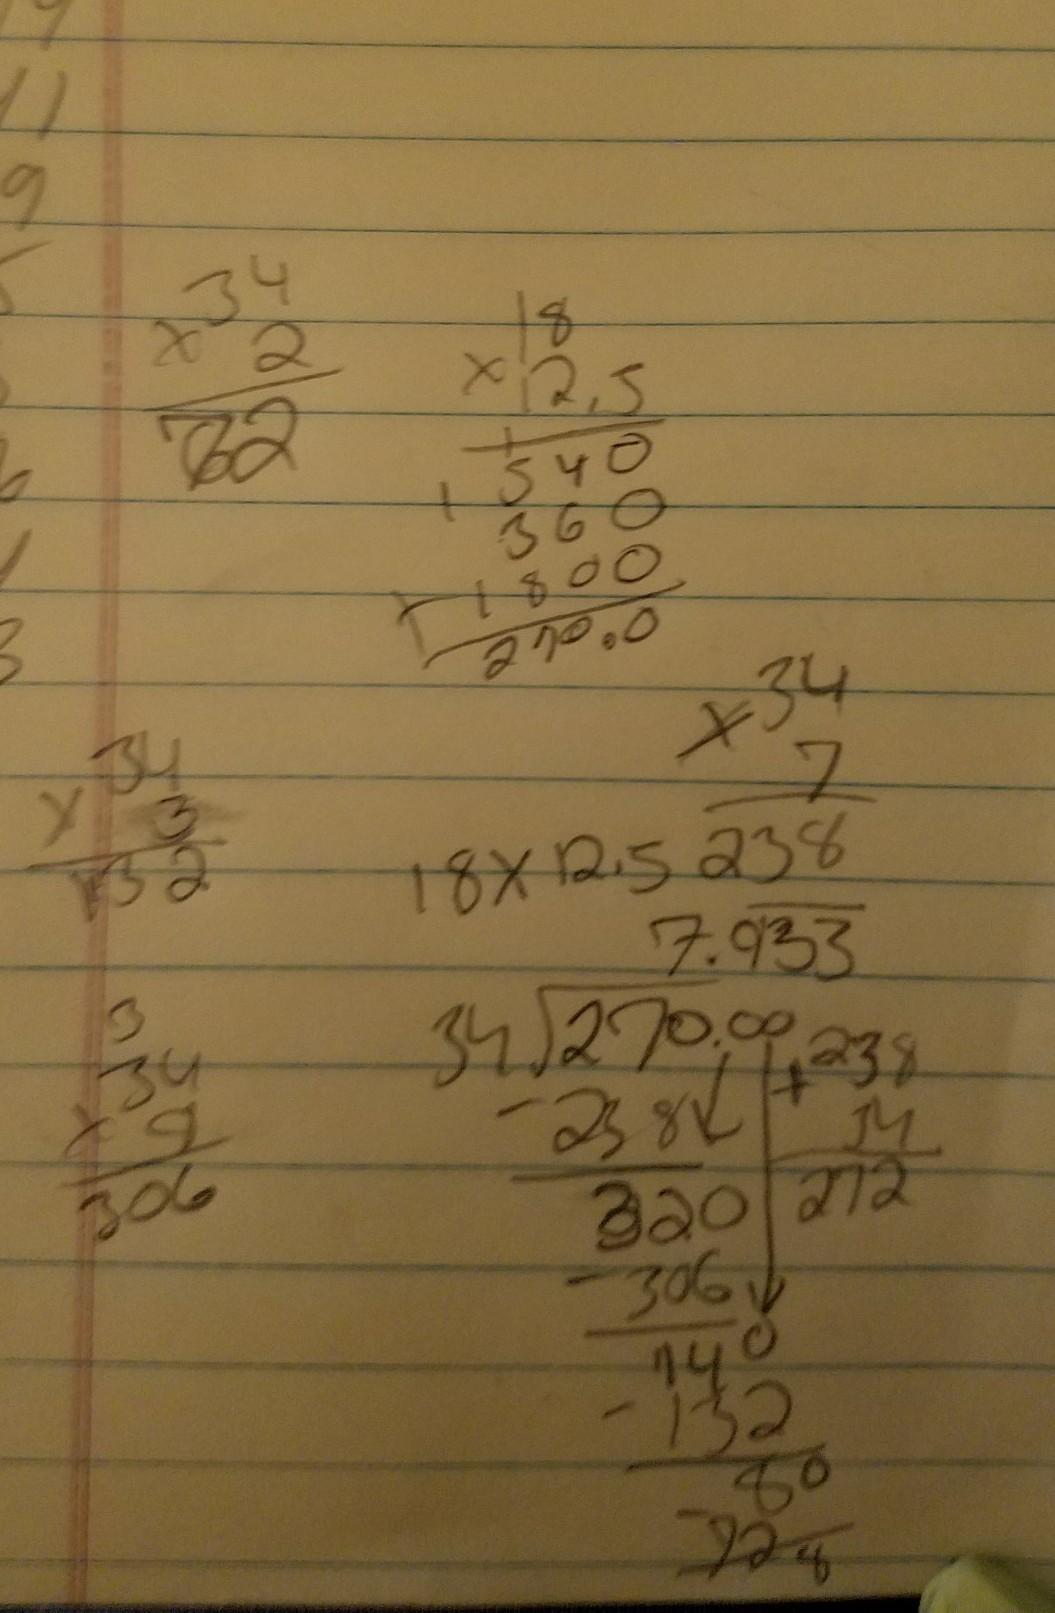 9
11
9
34
x 2
72
18
x 12.5
1
540
1
360
+ 1800
270.0
34
x 7
238
34
x 3
132
18 x 12.5
7.933
34 270.00
- 238
320
- 306
140
- 132
80
- 72
8
+ 238
34
272
3
34
x 9
306
3